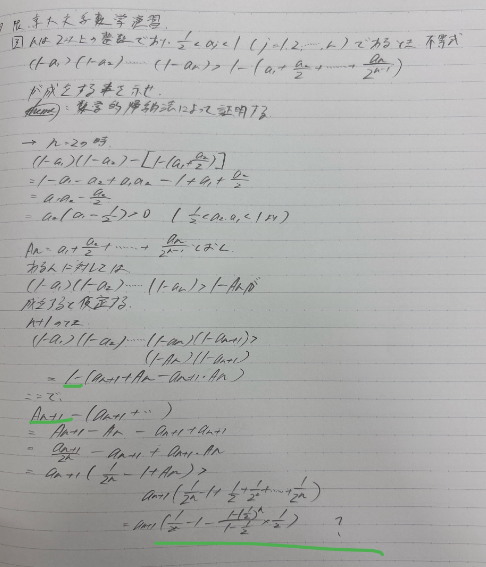 京大入学数学演習
因 nは2以上の整数であり、1/2<aj<1 (j=1,2,…,n) であるとき 不等式
(1-a1)(1-a2)……(1-an)>1-(a1+a2/2+……+an/2^(n-1))
が成立する事を示せ
: 数学的帰納法によって証明する
→ n=2の時
(1-a1)(1-a2)-[1-(a1+a2/2)]
=1-a1-a2+a1a2-1+a1+a2/2
=a1a2-a2/2
=a2(a1-1/2)>0 (1/2<a2,a1<1より)
An=a1+a2/2+……+an/2^(n-1) とおく
あるnに対しては
(1-a1)(1-a2)……(1-an)>1-Anが
成立すると仮定する
n+1のとき
(1-a1)(1-a2)……(1-an)(1-an+1)>
(1-An)(1-an+1)
=1-(an+1+An-an+1・An)
ここで、
An+1-(an+1+…)
=An+1-An-an+1+an+1
=an+1/2^n-an+1+an+1・An
=an+1(1/2^n-1+An)>
an+1(1/2^n-1+1/2+1/2^2+…+1/2^n)
=an+1(1/2^n-1-(1-(1/2)^n)/(1-1/2)×1/2) ?